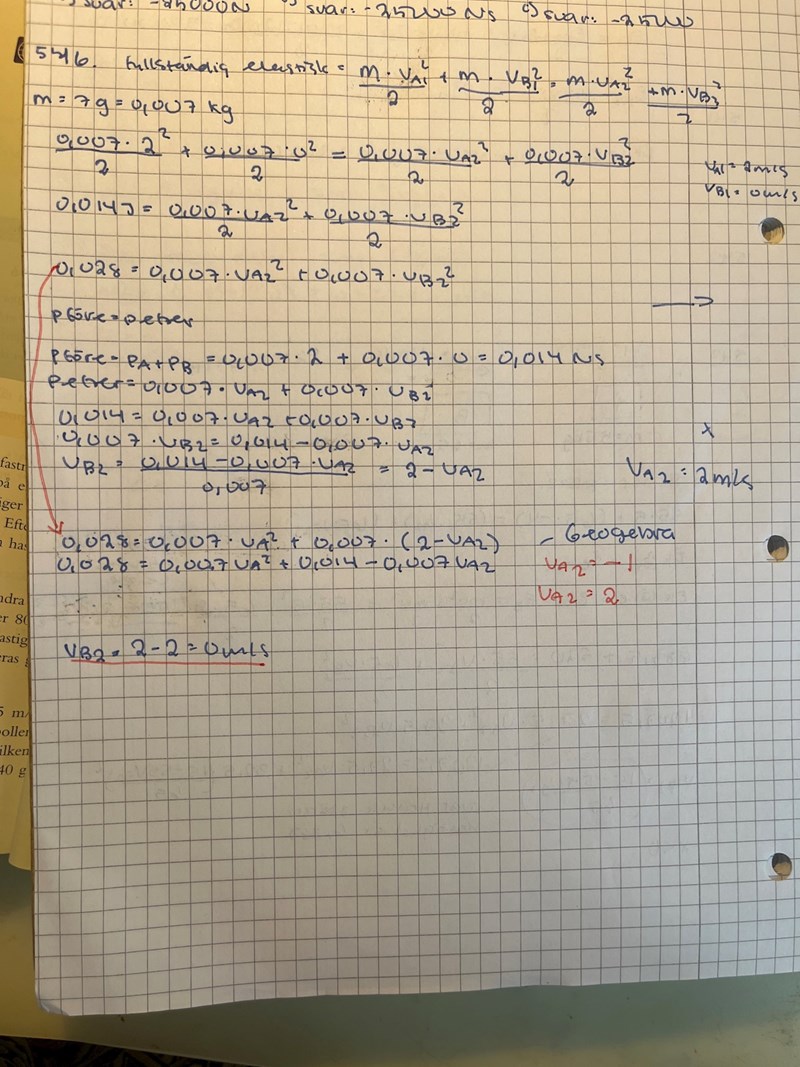 svar: -25000N svar: -25200 Ns c) svar: -2500
546. Fullständig elastisk = m · vA1²/2 + m · vB1²/2 = m·vA2²/2 + m·vB2²/2
m = 7g = 0,007 kg
0,007 · 2²/2 + 0,007 · 0²/2 = 0,007 · vA2²/2 + 0,007 · vB2²/2
vA1 = 2m/s
vB1 = 0m/s
0,014J = 0,007·vA2²/2 + 0,007 · vB2²/2
0,028 = 0,007 · vA2² + 0,007 · vB2²
pföre = pefter
pföre = pA + pB = 0,007 · 2 + 0,007 · 0 = 0,014 Ns
pefter = 0,007 · vA2 + 0,007 · vB2
0,014 = 0,007 · vA2 + 0,007 · vB2
0,007 · vB2 = 0,014 - 0,007 · vA2
vB2 = 0,014 - 0,007 · vA2/0,007 = 2 - vA2
vA2 = 2m/s
0,028 = 0,007 · vA² + 0,007 · (2 - vA2) - Geogebra
0,028 = 0,007 vA² + 0,014 - 0,007 vA2
vA2 = -1
vA2 = 2
vB2 = 2 - 2 = 0m/s
fastr
på e
iger
Efte
ha
ndra
er 80
astig
ras
5 m
oller
ilken
40 g